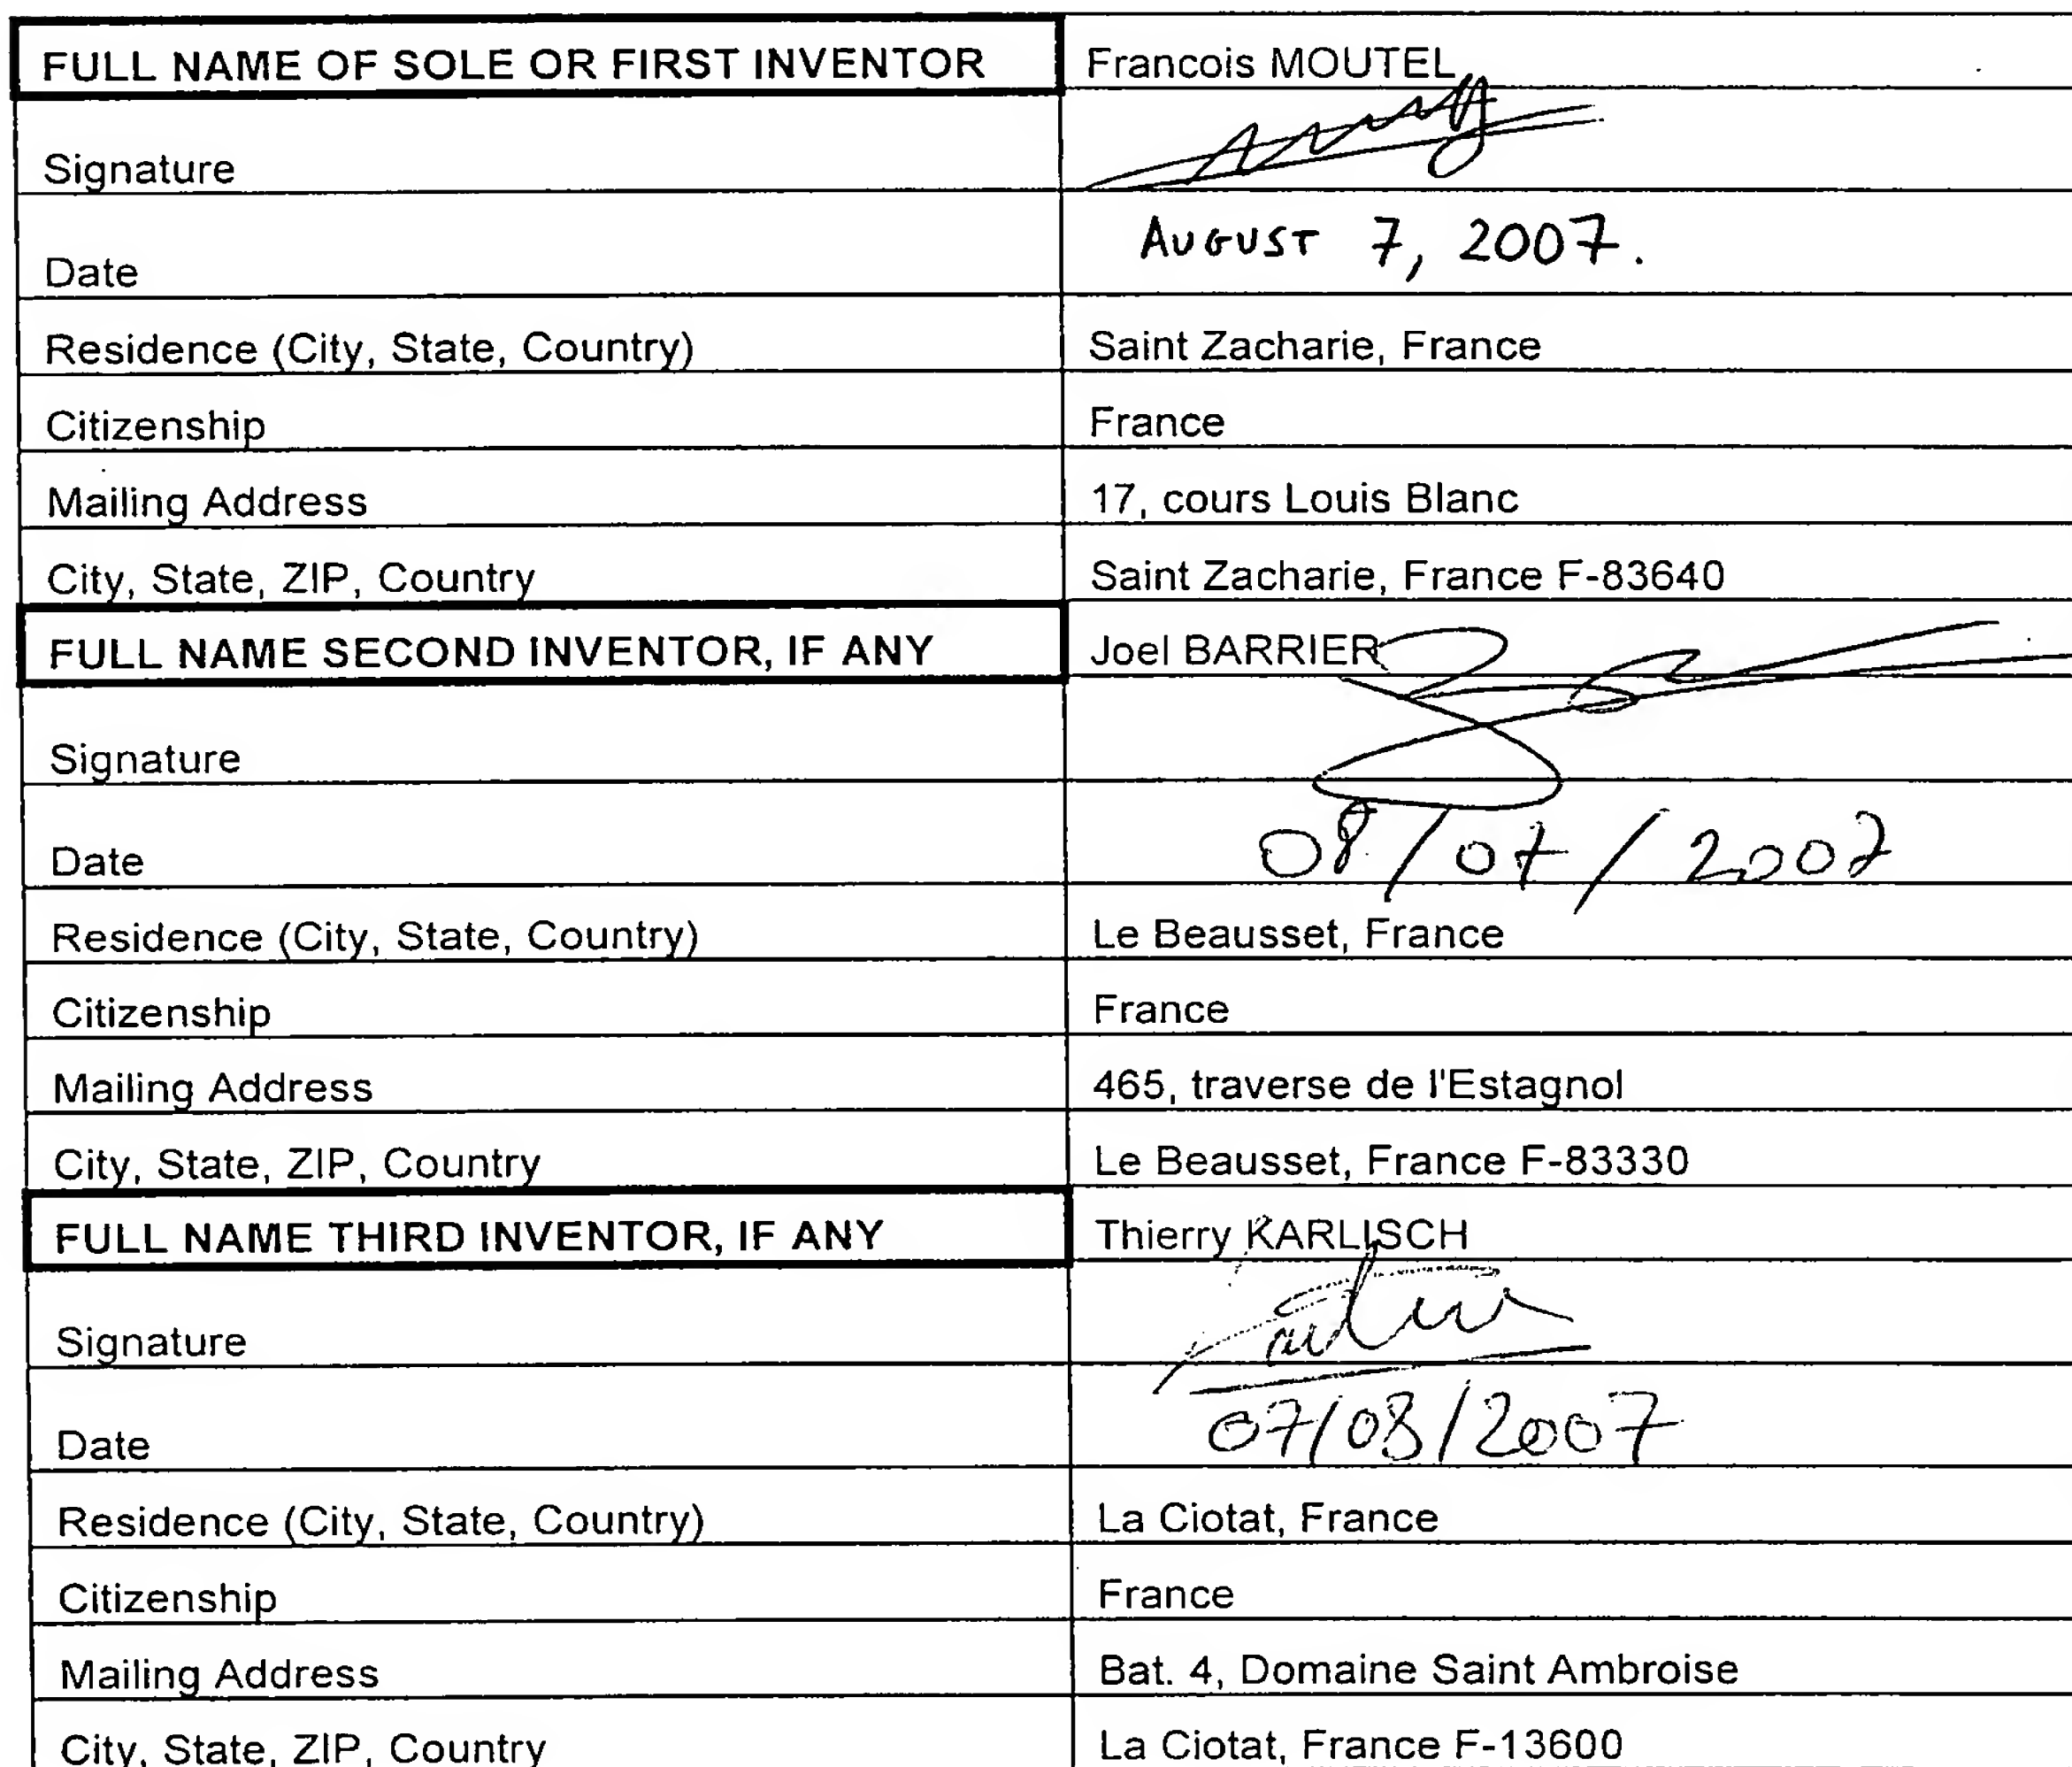 FULL NAME OF SOLE OR FIRST INVENTOR Francois MOUTEL
Signature
Date AUGUST 7, 2007.
Residence (City, State, Country) Saint Zacharie, France
Citizenship France
Mailing Address 17, cours Louis Blanc
City, State, ZIP, Country Saint Zacharie, France F-83640
FULL NAME SECOND INVENTOR, IF ANY Joel BARRIER
Signature
Date 08/07/2007
Residence (City, State, Country) Le Beausset, France
Citizenship France
Mailing Address 465, traverse de l'Estagnol
City, State, ZIP, Country Le Beausset, France F-83330
FULL NAME THIRD INVENTOR, IF ANY Thierry KARLISCH
Signature
Date 07/08/2007
Residence (City, State, Country) La Ciotat, France
Citizenship France
Mailing Address Bat. 4, Domaine Saint Ambroise
City, State, ZIP, Country La Ciotat, France F-13600